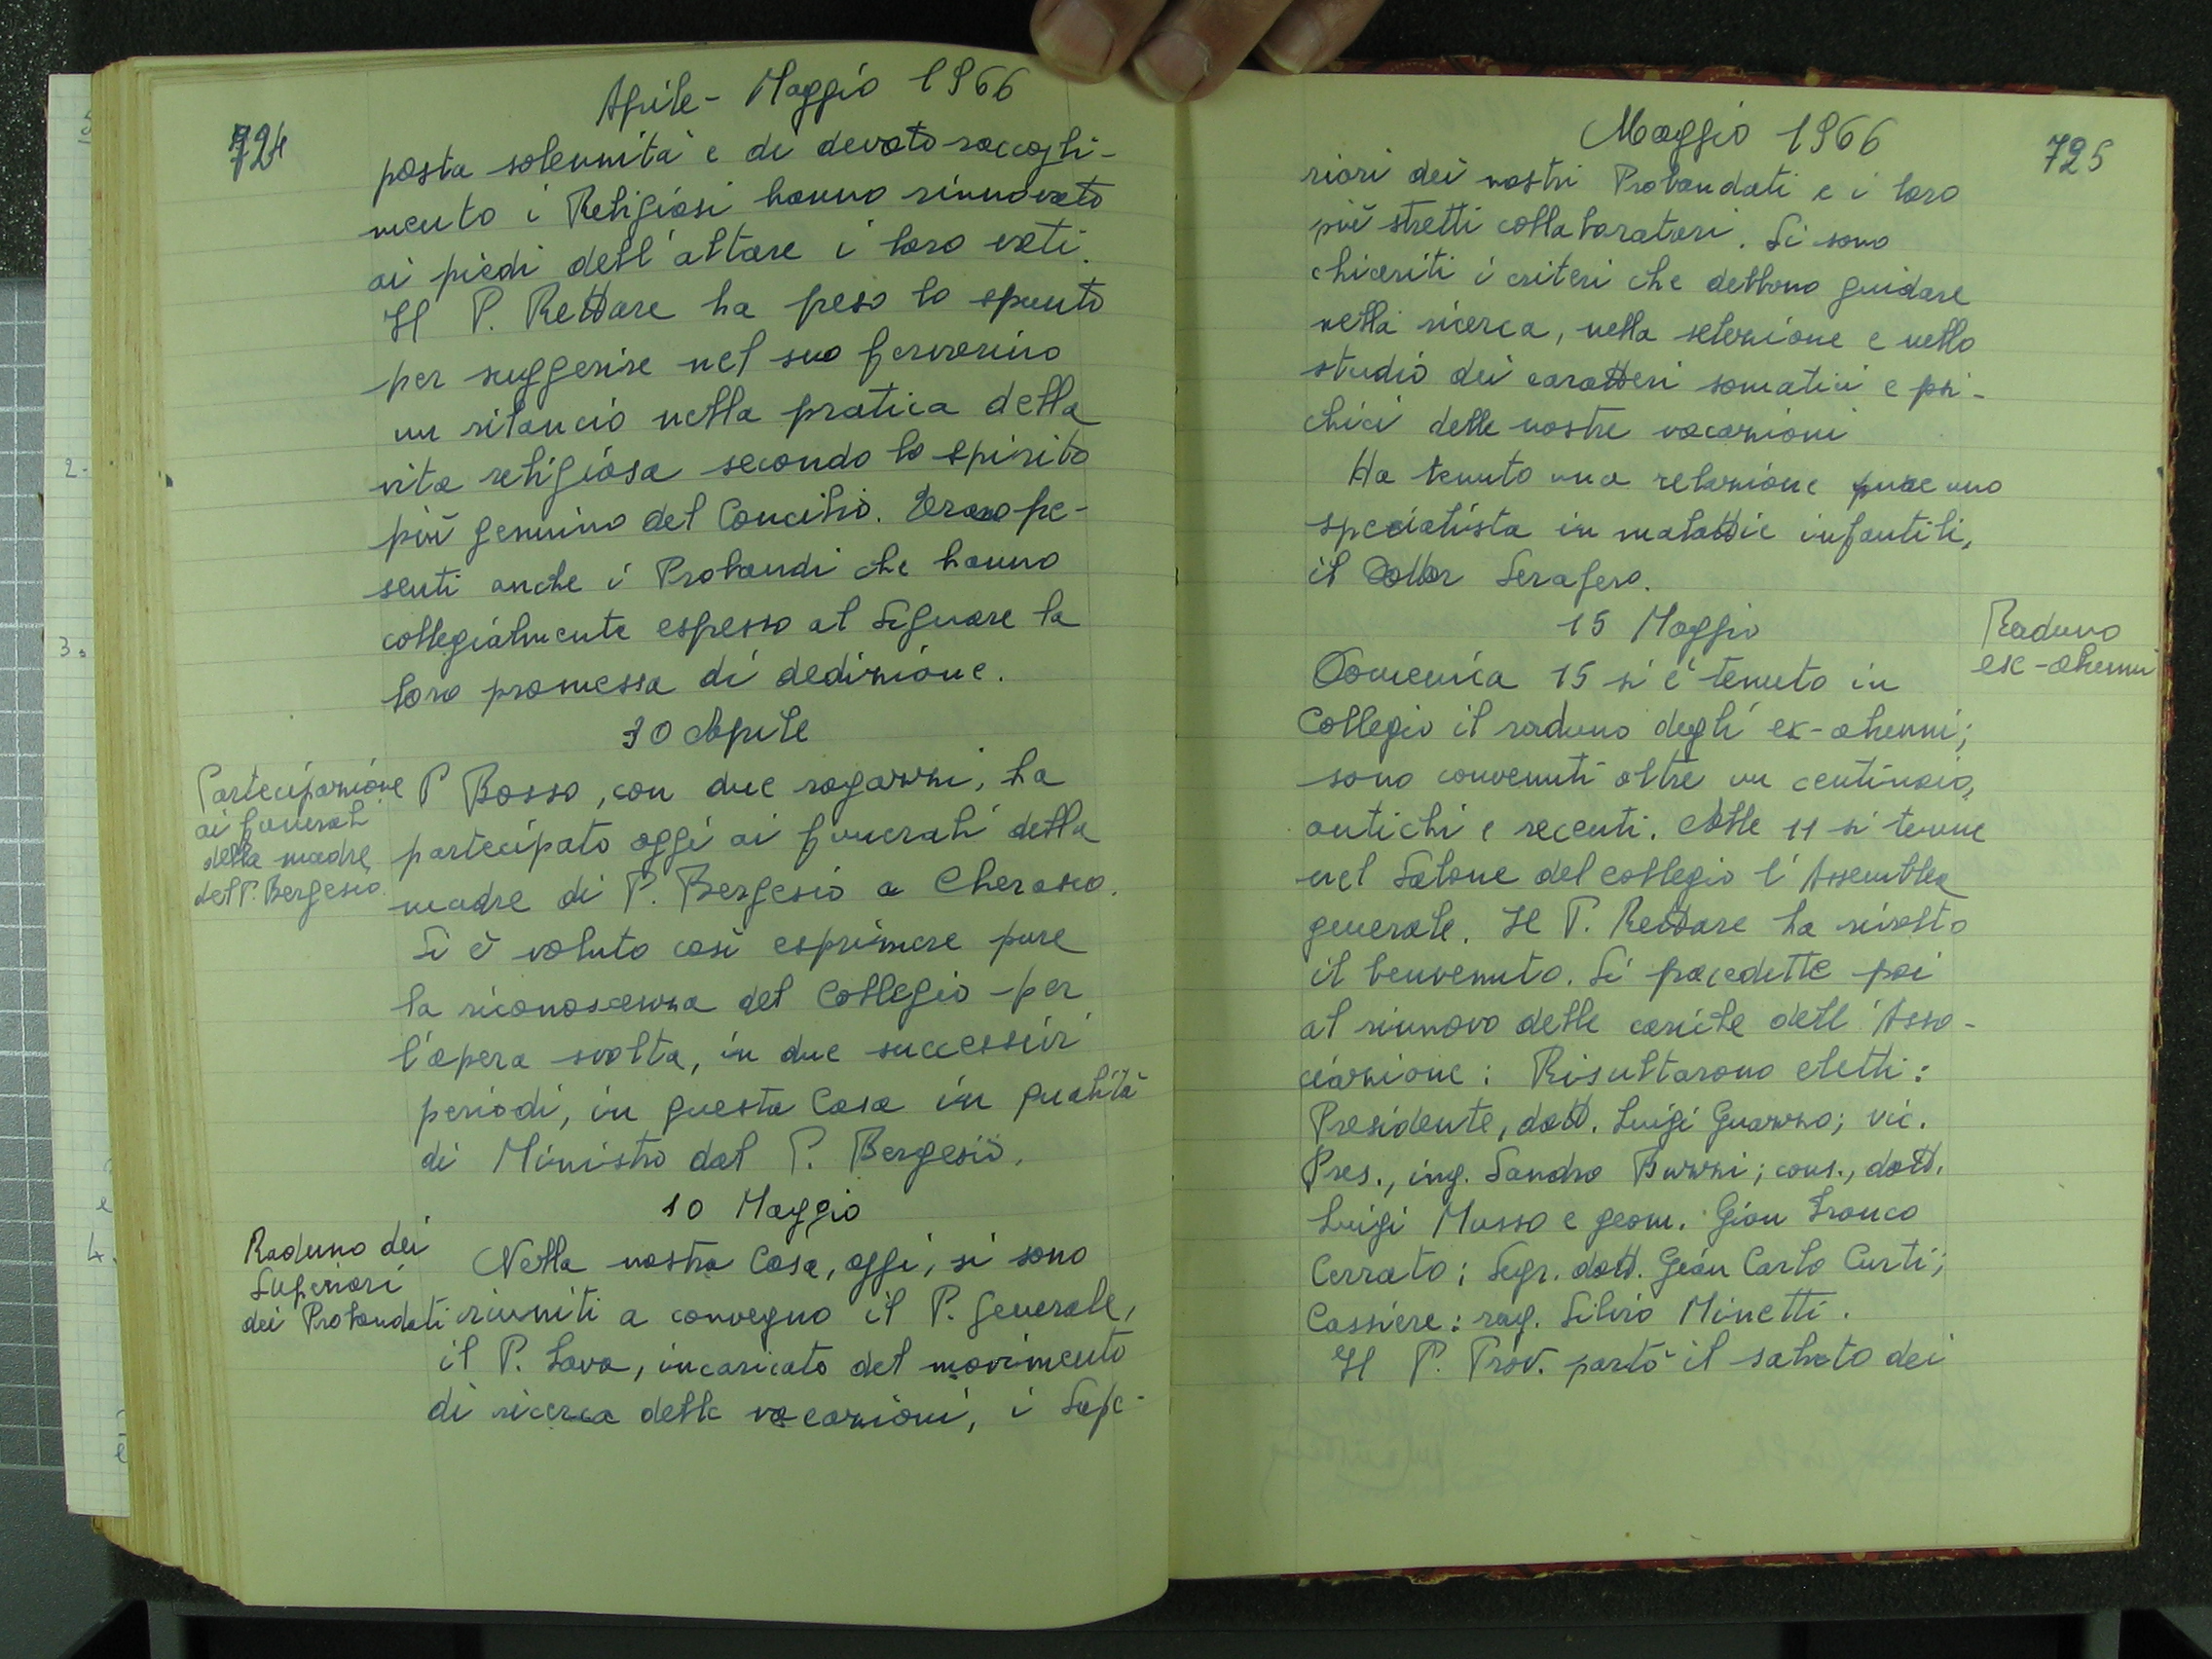 724
Aprile - Maggio 1966
posta solennità e di devoto raccogli-
mento i Religiosi hanno rinnovato
ai piedi dell'altare i loro voti.
Il P. Rettore ha preso lo spunto
per suggerire nel suo fervorino
un rilancio nella pratica della
vita religiosa secondo lo spirito
più genuino del Concilio. Erano pre-
senti anche i Probandi che hanno
collegialmente espresso al Signore la
loro promessa di dedizione.
30 Aprile
Partecipazione
ai funerali
della madre
del P. Bergesio.
P Bosso, con due ragazzi, ha
partecipato oggi ai funerali della
madre di P. Bergesio a Cherasco.
Si è voluto così esprimere pure
la riconoscenza del Collegio per
l'opera svolta, in due successivi
periodi, in questa Casa in qualità
di Ministro dal P. Bergesio.
10 Maggio
Raduno dei
Superiori
dei Probandati
Nella nostra Casa, oggi, si sono
riuniti a convegno il P. Generale,
il P. Lova, incaricato del movimento
di ricerca delle vocazioni, i Supe-
Maggio 1966
725
riori dei nostri Probandati e i loro
più stretti collaboratori. Si sono
chiariti i criteri che debbono guidare
nella ricerca, nella selezione e nello
studio dei caratteri somatici e psi-
chici delle nostre vocazioni
Ha tenuto una relazione pure uno
specialista in malattie infantili,
il Dottor Serafero.
15 Maggio
Raduno
ex-alunni
Domenica 15 si è tenuto in
Collegio il raduno degli ex-alunni;
sono convenuti oltre un centinaio,
antichi e recenti. Alle 11 si tenne
nel Salone del collegio l'Assemblea
generale. Il P. Rettore ha rivolto
il benvenuto. Si procedette poi
al rinnovo delle cariche dell'Asso-
ciazione: Risultarono eletti:
Presidente, dott. Luigi Guazzo; vic.
Pres., ing. Sandro Buzzi; cons., dott.
Luigi Musso e geom. Gian Franco
Cerrato; Segr. dott. Gian Carlo Curti;
Cassiere: rag. Silvio Minetti.
Il P. Prov. portò il saluto dei